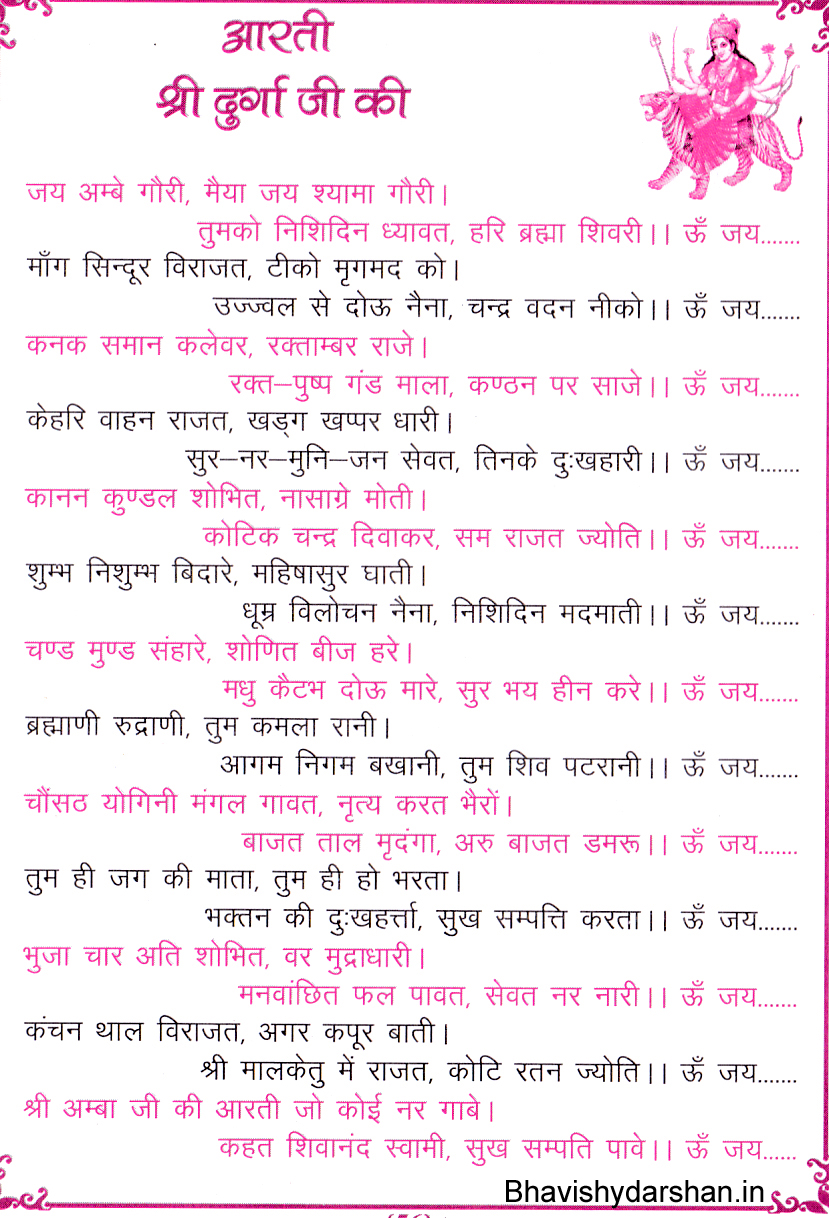 आरती
श्री दुर्गा जी की
जय अम्बे गौरी, मैया जय श्यामा गौरी।
तुमको निशिदिन ध्यावत, हरि ब्रह्मा शिवरी।। ऊँ जय.......
माँग सिन्दूर विराजत, टीको मृगमद को।
उज्ज्वल से दोऊ नैना, चन्द्र वदन नीको।। ऊँ जय.......
कनक समान कलेवर, रक्ताम्बर राजे।
रक्त–पुष्प गंड माला, कण्ठन पर साजे।। ऊँ जय.......
केहरि वाहन राजत, खड्ग खप्पर धारी।
सुर–नर–मुनि–जन सेवत, तिनके दुःखहारी।। ऊँ जय.......
कानन कुण्डल शोभित, नासाग्रे मोती।
कोटिक चन्द्र दिवाकर, सम राजत ज्योति।। ऊँ जय.......
शुम्भ निशुम्भ बिदारे, महिषासुर घाती।
धूम्र विलोचन नैना, निशिदिन मदमाती।। ऊँ जय.......
चण्ड मुण्ड संहारे, शोणित बीज हरे।
मधु कैटभ दोऊ मारे, सुर भय हीन करे।। ऊँ जय.......
ब्रह्माणी रुद्राणी, तुम कमला रानी।
आगम निगम बखानी, तुम शिव पटरानी।। ऊँ जय.......
चौंसठ योगिनी मंगल गावत, नृत्य करत भैरों।
बाजत ताल मृदंगा, अरु बाजत डमरू।। ऊँ जय.......
तुम ही जग की माता, तुम ही हो भरता।
भक्तन की दुःखहर्त्ता, सुख सम्पत्ति करता।। ऊँ जय.......
भुजा चार अति शोभित, वर मुद्राधारी।
मनवांछित फल पावत, सेवत नर नारी।। ऊँ जय.......
कंचन थाल विराजत, अगर कपूर बाती।
श्री मालकेतु में राजत, कोटि रतन ज्योति।। ऊँ जय.......
श्री अम्बा जी की आरती जो कोई नर गाबे।
कहत शिवानंद स्वामी, सुख सम्पति पावे।। ऊँ जय......
Bhavishydarshan.in